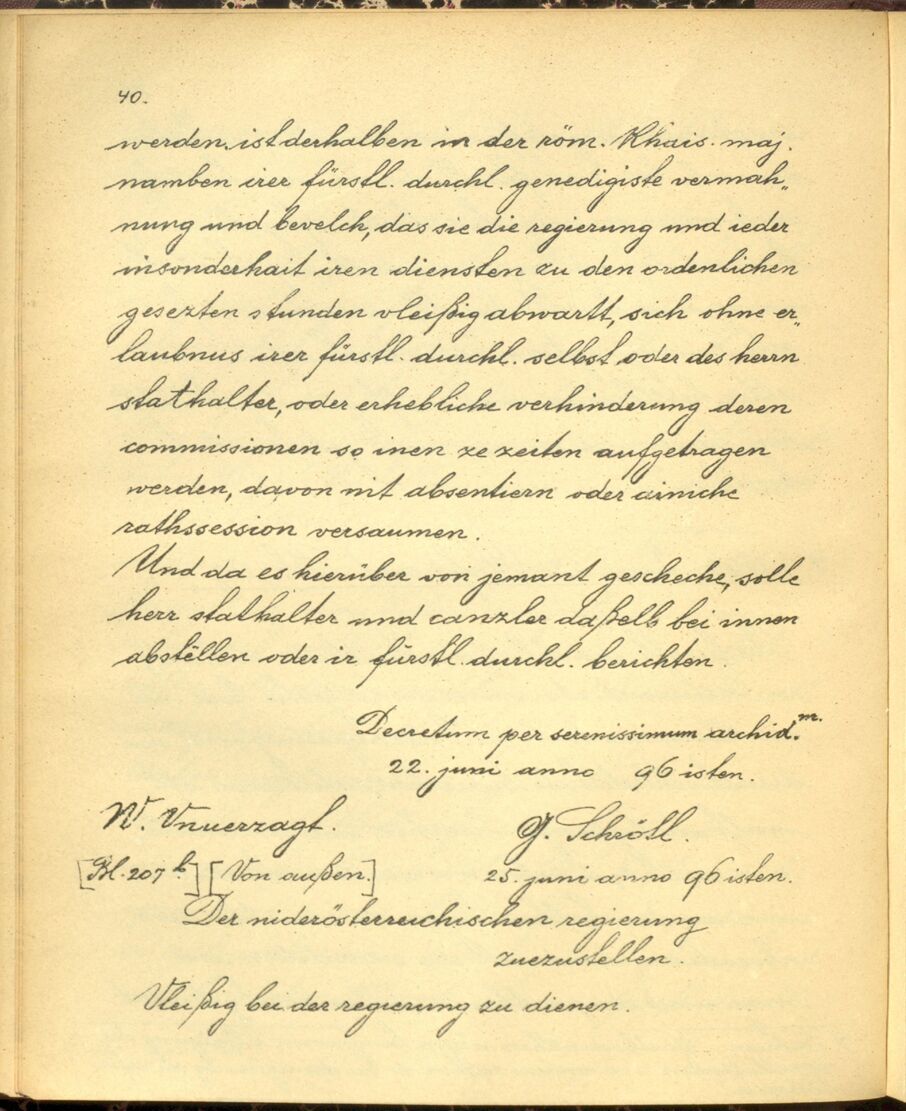 40.
werden. ist derhalben in der röm. Khais. maj.
namben irer fürstl. durchl. genedigiste vermah„
nung und bevelch, das sie die regierung und ieder
insonderhait iren diensten zu den ordenlichen
gesezten stunden vleißig abwartt, sich ohne er„
laubnus irer fürstl. durchl. selbst oder des herrn
stathalter, oder erhebliche verhinderung deren
commissionen so inen ze zeiten aufgetragen
werden, davon nit absentiern oder ainiche
rathssession versaumen.
Und da es hierüber von jemant gescheche, solle
herr stathalter und canzler daßelb bei innen
abstëllen oder ir fürstl. durchl. berichten.
Decretum per serenissimum archid.m.
22. juni anno 96 isten.
W. Vnuerzagt.
G. Schrötl.
[Bl. 207 b.] [Von außen.]
25. juni anno 96 isten.
Der niderösterreichischen regierung
zuezustellen.
Vleißig bei der regierung zu dienen.